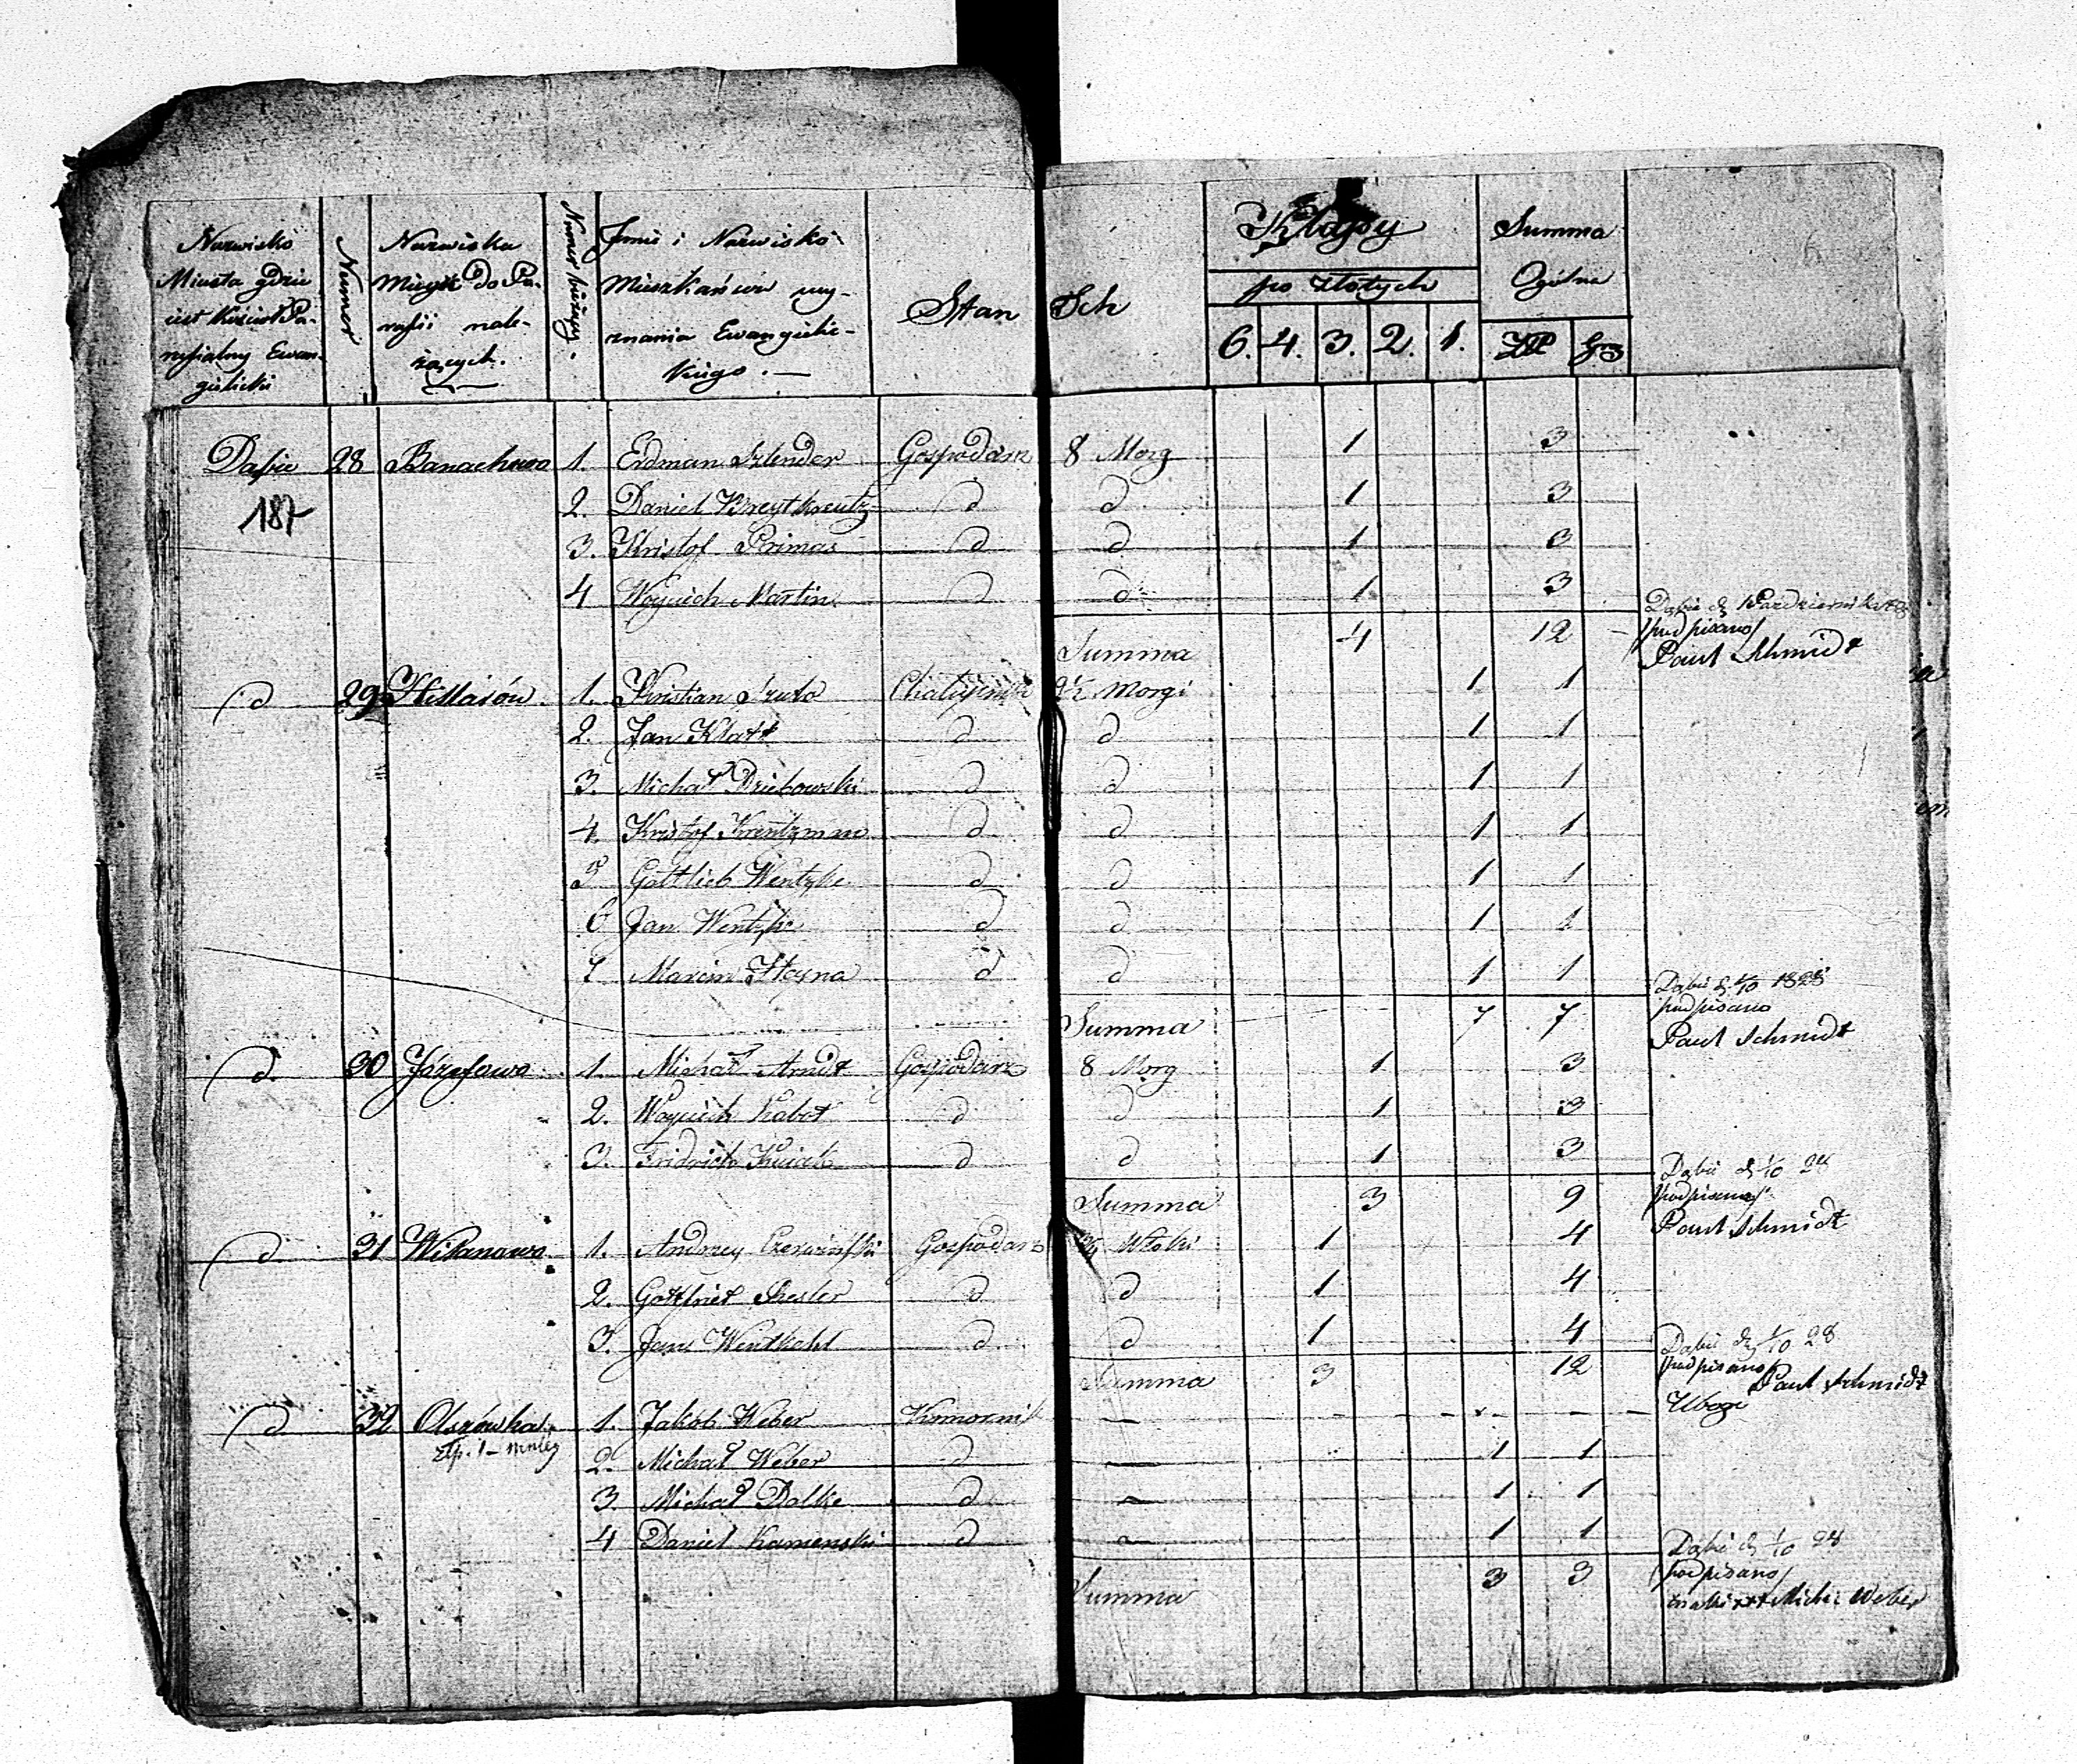 Nazwisko Miasta gdzie jest Kościoł Parafialny Ewangielicki
Numer
Nazwiska Mieysc Do Parafii należących.
Numer bieżący.
Jmie i Nazwisko Mieszkańców wyznania Ewangielickiego. —
Stan
Ich
Klassy
po złotych
6. 4. 3. 2. 1.
Summa Ogólna
ZłP Gr
Dąbie 28 Banachowo 1. Erdman Szlender Gospodarz 8 Morg 1 3
187
2. Daniel Breytkreutz d d 1 3
3. Kristof Primas d d 1 3
4 Woyciech Martin d d 1 3
Summa 4 12
Dąbie d. 1 Pazdziernika 28
/podpisano/
Paul Schmidt
d 29 1. Kristian d 1 1
Morgi
2. Jan Klatt d d 1 1
3. Michał Dziebowski d d 1 1
4. Kristof d d 1 1
5 Gottlieb Wentzke d d 1 1
6 Jan Wentzke d d 1 1
7 Marcin Heyna d d 1 1
Summa 7 7
Dąbie d. 1/10 1828
podpisano
Paul Schmidt
d. 30 Józefowo 1. Michał Arndt Gospodarz 8 Morg 1 3
2. Woyciech d d 1 3
3. Fridrich d d 1 3
Summa 3 9
Dąbie d. 1/10 28
/podpisano/
Paul Schmidt
d. 31 Wikanowo 1. Andrzey Czerwiński Gospodarz Włoki 1 4
2. Gottfriet d d 1 4
3. Jan d d 1 4
Summa 3 12
Dąbie d. 1/10 28
/podpisano/
Paul Schmidt
d 32 Olszówka 1. Jakób Weber Komornik — — — — Ubogi
złp. 1 – mniéy
2. Michał Weber d — 1 1
3 Michał Dalke d — 1 1
4 Daniel Kamenski d — 1 1
Summa 3 3
Dąbie d. 1/10 28
/podpisano/
znaki +++ Michał Weber